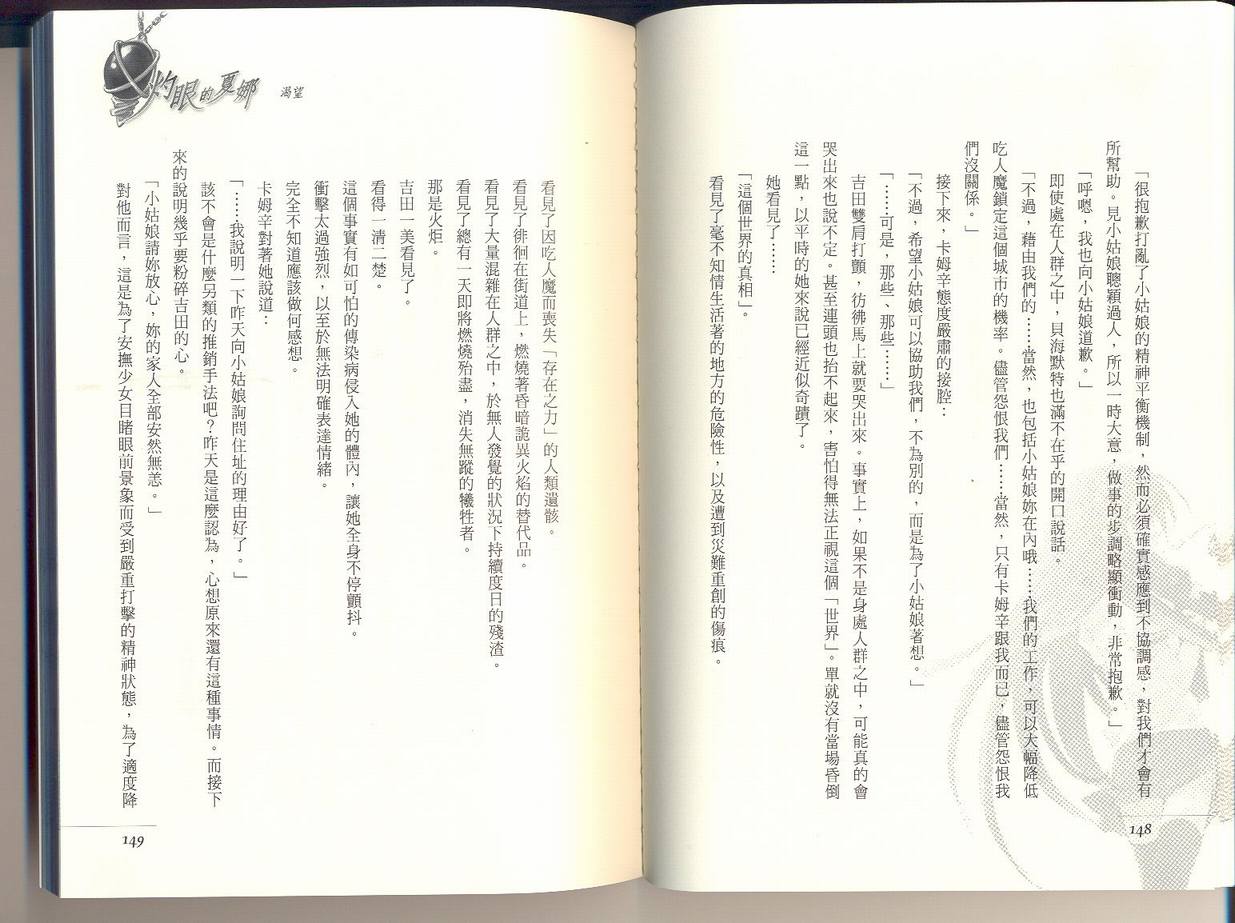 「很抱歉打亂了小姑娘的精神平衡機制，然而必須確實感應到不協調感，對我們才會有
所幫助。見小姑娘聰穎過人，所以一時大意，做事的步調略顯衝動，非常抱歉。」
「呼嗯，我也向小姑娘道歉。」
即使處在人群之中，貝海默特也滿不在乎的開口說話。
「不過，藉由我們的……當然，也包括小姑娘妳在內哦……我們的工作，可以大幅降低
吃人魔鎖定這個城市的機率。儘管怨恨我們……當然，只有卡姆辛跟我而已，儘管怨恨我
們沒關係。」
接下來，卡姆辛態度嚴肅的接腔：
「不過，希望小姑娘可以協助我們，不為別的，而是為了小姑娘著想。」
「……可是，那些、那些……」
吉田雙肩打顫，彷彿馬上就要哭出來。事實上，如果不是身處人群之中，可能真的會
哭出來也說不定。甚至連頭也抬不起來，害怕得無法正視這個「世界」。單就沒有當場昏倒
這一點，以平時的她來說已經近似奇蹟了。
她看見了……
「這個世界的真相」。
看見了毫不知情生活著的地方的危險性，以及遭到災難重創的傷痕。
148
灼眼的夏娜
渴望
看見了因吃人魔而喪失「存在之力」的人類遺骸。
看見了徘徊在街道上，燃燒著昏暗詭異火焰的替代品。
看見了大量混雜在人群之中，於無人發覺的狀況下持續度日的殘渣。
看見了總有一天即將燃燒殆盡，消失無蹤的犧牲者。
那是火炬。
吉田一美看見了。
看得一清二楚。
這個事實有如可怕的傳染病侵入她的體內，讓她全身不停顫抖。
衝擊太過強烈，以至於無法明確表達情緒。
完全不知道應該做何感想。
卡姆辛對著她說道：
「……我說明一下昨天向小姑娘詢問住址的理由好了。」
該不會是什麼另類的推銷手法吧？昨天是這麼認為，心想原來還有這種事情。而接下
來的說明幾乎要粉碎吉田的心。
「小姑娘請妳放心，妳的家人全部安然無恙。」
對他而言，這是為了安撫少女目睹眼前景象而受到嚴重打擊的精神狀態，為了適度降
149